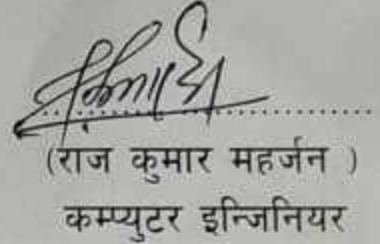 (राज कुमार महर्जन )
कम्प्युटर इन्जिनियर